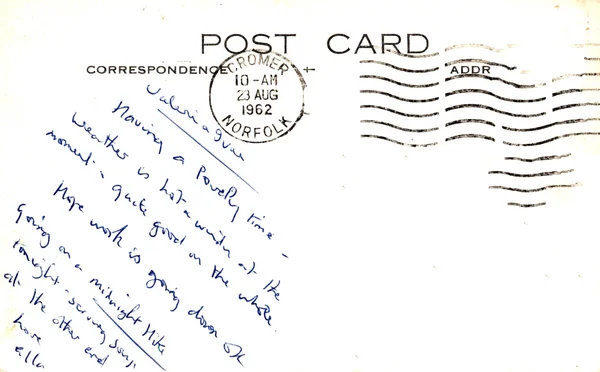 POST CARD
CORRESPONDENCE
ADDR
CROMER
10-AM
23 AUG
1962
NORFOLK
Having a lovely time -
Weather is hot & windy at the
moment - quite good on the whole.
Hope work is going down OK
Going on a midnight Hike
tonight - serving soup
at the other end
have